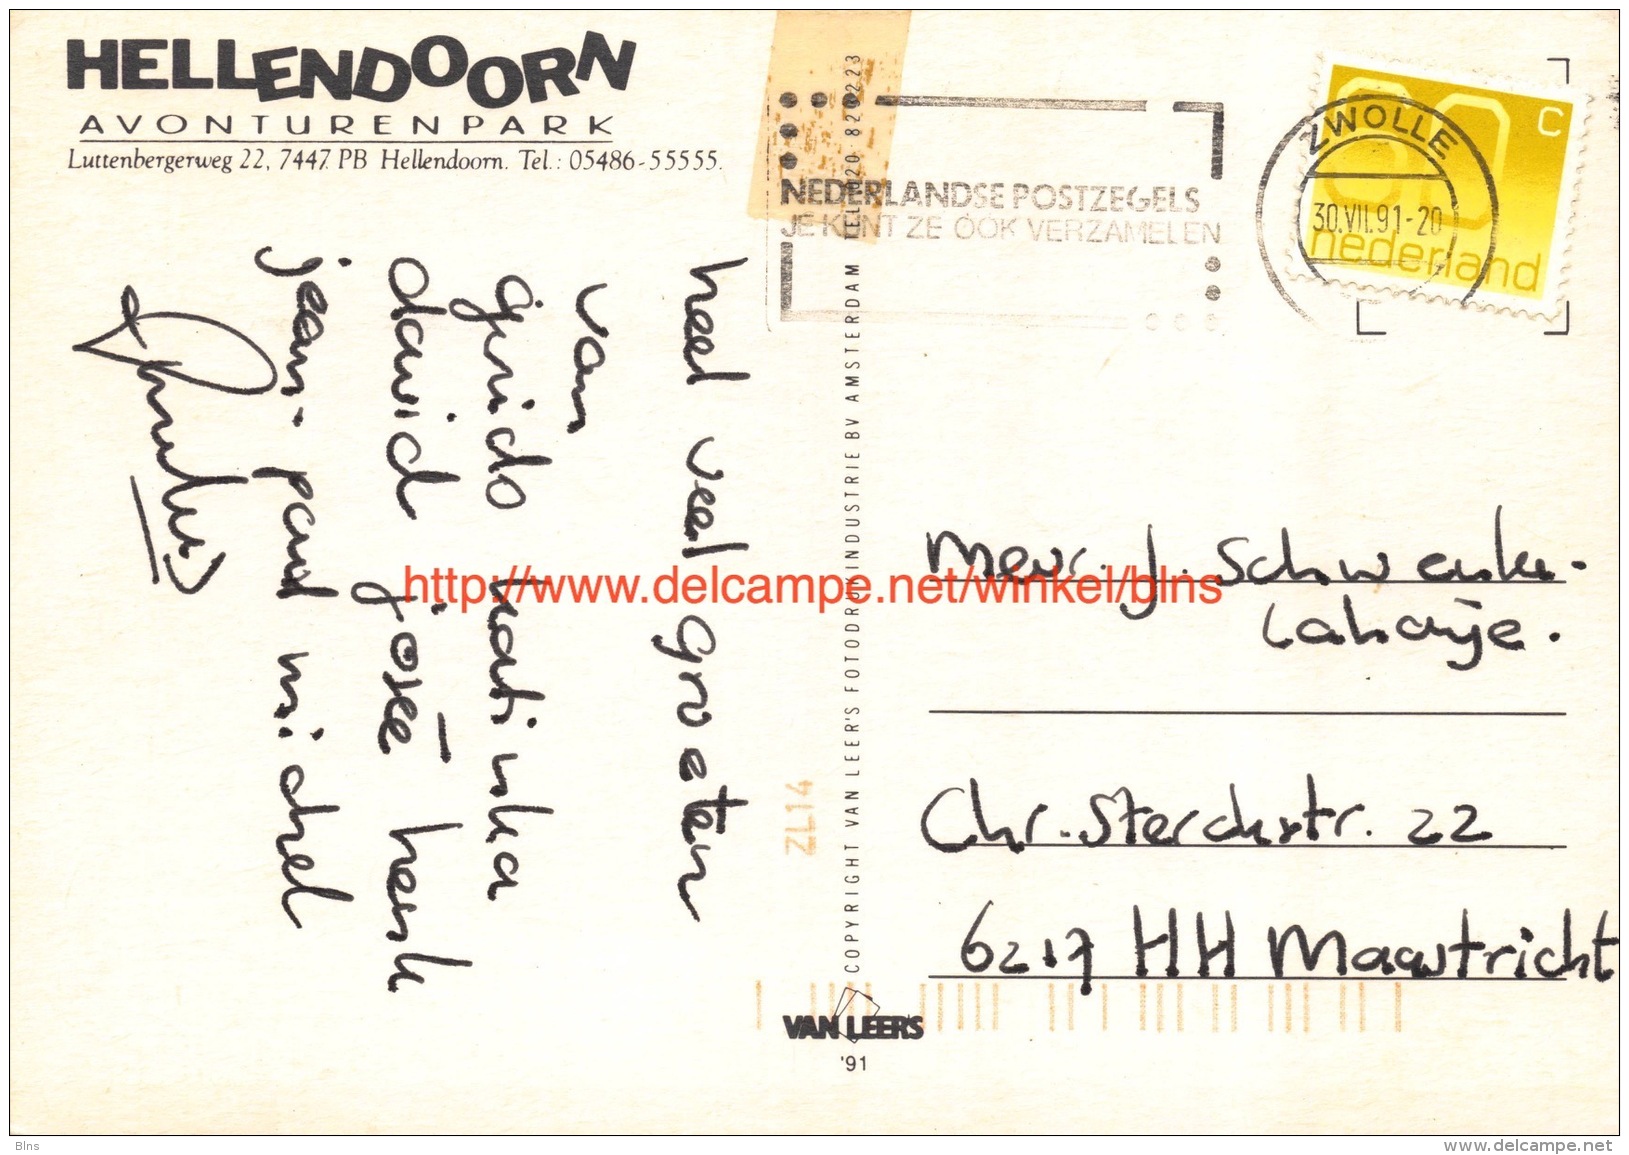 HELLENDOORN
AVONTURENPARK
Luttenbergerweg 22, 7447 PB Hellendoorn. Tel.: 05486-55555.
NEDERLANDSE POSTZEGELS
JE KUNT ZE OOK VERZAMELEN
ZWOLLE
30.VII.91-20
60 C
nederland
heel veel groeten
van
guido katinka
david josée henk
jean-paul michel
COPYRIGHT VAN LEER'S FOTODRUKINDUSTRIE BV AMSTERDAM TEL. 020 829223
ZL14
Mevr. J. Schwenke-
Lahaye.
Chr. Sterckstr. 22
6217 HH Maastricht
VAN LEER'S
'91
http://www.delcampe.net/winkel/blns
Blns
www.delcampe.net